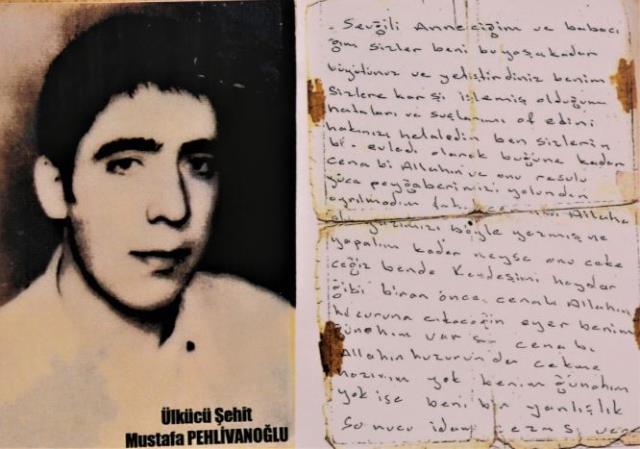 Ülkücü Şehit
Mustafa PEHLİVANOĞLU
Sevğili Anneciğim ve babacı
ğım sizler beni bu yaşa kadar
büyütünüz ve yetiştirdiniz benim
Sizlere karşi işlemiş olduğum
hataları ve suçlarımı af edin
hakınızı helaledin ben sizlerin
bir evledi olarak buğüne kadar
cenabi Allahın ve onu resulu
yüce peyğaberimizi yolundan
ayrılmadım Allaha
yazımızı böyle yezmiş ne
yapalım kader neyse onu ceke
ceğiz bende Kardeşimi haydar
ğibi biran önce cenabı Allahın
huzuruna cıkacağim eyer benim
ğünahım varsa cenabi
Allahın huzurun'da cekme
hazırım yok benim ğünahım
yok ise beni bir yanlışlık
Sonucu idam